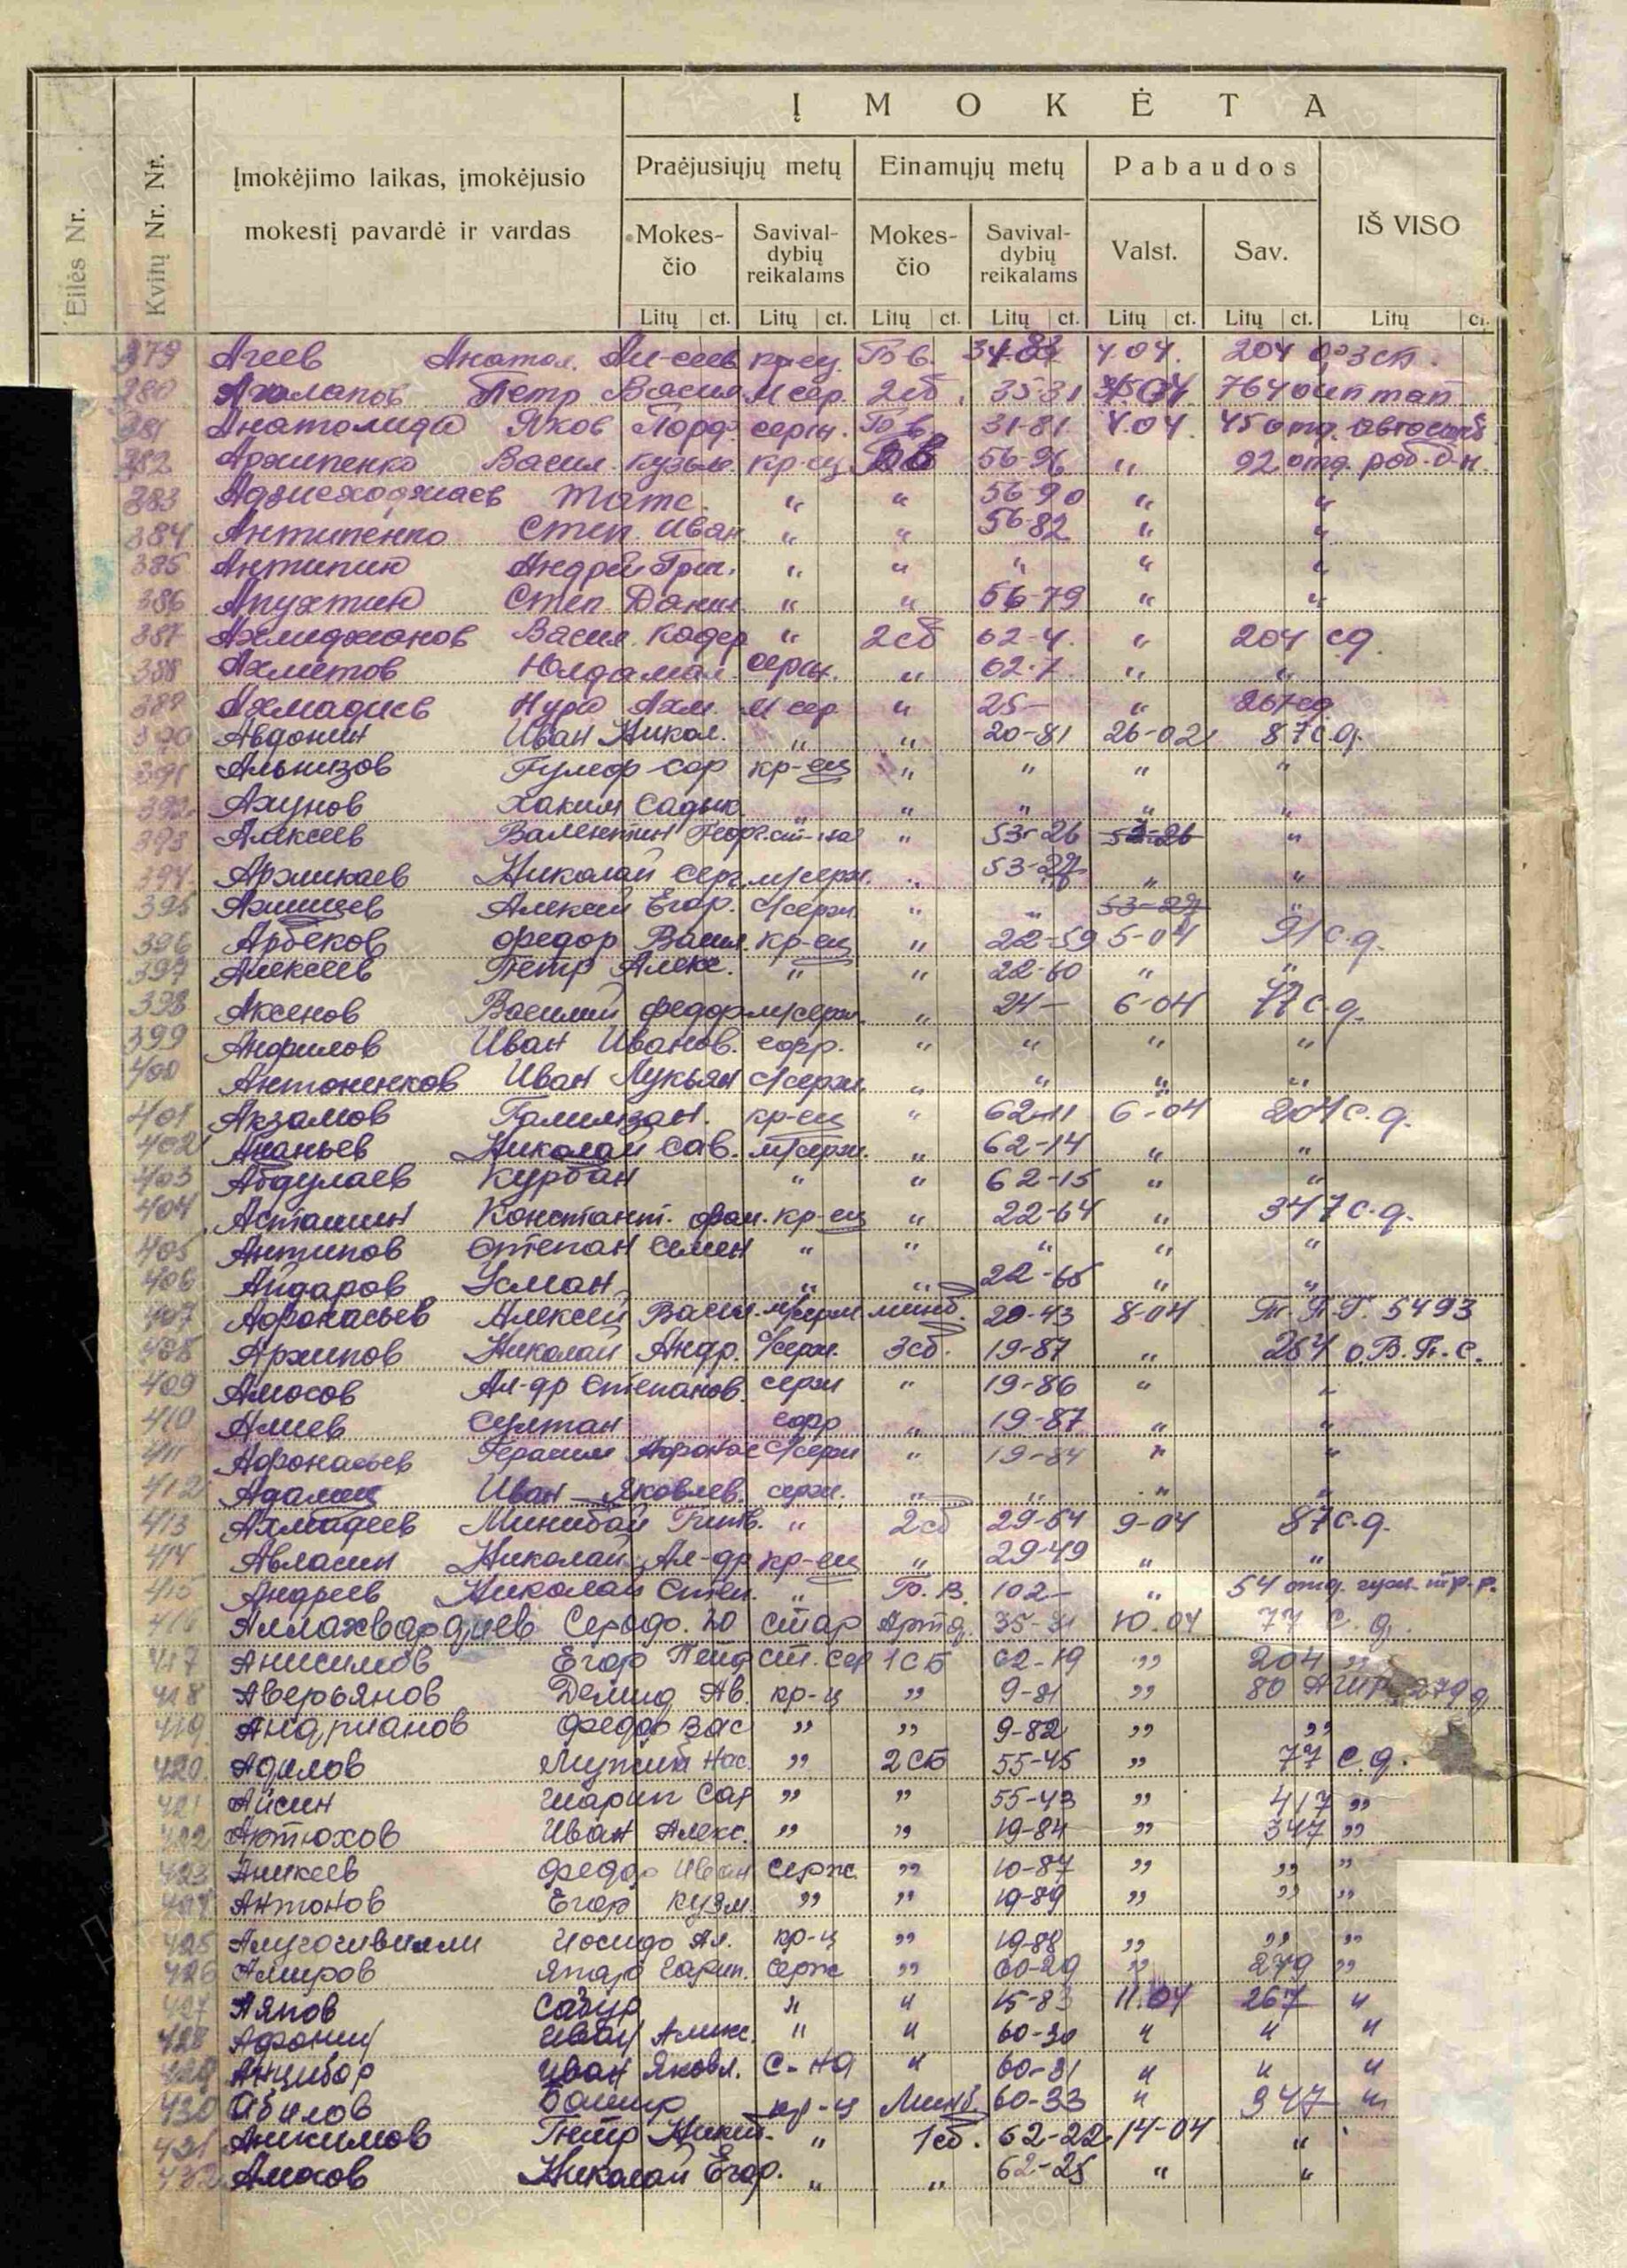 Į M O K Ė T A
Eilės Nr.
Kvitų Nr. Nr.
Įmokėjimo laikas, įmokėjusio
mokestį pavardė ir vardas
Praėjusiųjų metų Einamųjų metų Pabaudos
IŠ VISO
Mokes-čio Savival-dybių reikalams Mokes-čio Savival-dybių reikalams Valst. Sav.
Litų ct. Litų ct. Litų ct. Litų ct. Litų ct. Litų ct. Litų ct.
379 Агеев Анатол. кр-ец. Б.в. 4.04. 204 озсп.
380 Петр Васил. М сер. 2сб. 35-31 764
381 Яков серж. Б.в. 31-81 4.04. 45 отд.
382 Архипенко Васил. Кузьм. кр-ец 56-96 " 92 отд. раб. б-н.
383 Аджиходжаев " " 56-90 " "
384 Антипенко Степ. Иван. " " 56-82 " "
385 Антипин Андрей Григ. " " " " "
386 Апухтин Степ. Данил. " " 56-79 " "
387 Ахмиджанов Васил. Кадер " 2сб 62-4. " 204 сд.
388 Ахметов серж. " 62-7. " "
389 Ахмадиев Нург Ахм. М сер. " 25- " 267 сд
390 Авдонин Иван Никол. " " 20-81 26-02 87 с.д.
391 кр-ец " " " "
392 Ахунов Хаким Садык " " " " "
393 Алексеев Валентин Георг. ст-на " 53-26 53-26 "
394 Аржикаев Николай Серг. м/серж. " 53-22 " "
395 Алексей Егор. с/серж. " " 53-22 "
396 Арбеков Федор Васил. кр-ец " 22-59 5-04 91 с.д.
397 Алексеев Петр Алекс. " " 22-60 " "
398 Аксенов Василий Федор м/серж. " 24- 6-04 77 с.д.
399 Анфилов Иван Иванов. ефр. " " " "
400 Антоненков Иван Лукьян с/серж. " " " "
401 Акзамов Галимзан. кр-ец " 62-11 6-04 204 с.д.
402 Ананьев Николай Сав. м/серж. " 62-14 " "
403 Абдулаев Курбан " " 62-15 " "
404 Асташин Констант. кр-ец " 22-64 " 347 с.д.
405 Антипов Степан Семен " " " " "
406 Айдаров Усман " " 22-65 " "
407 Афонасьев Алексей Васил. м/серж минб. 20-43 8-04 Т.П.Г. 5493
408 Архипов Николай Андр. с/серж. 3сб. 19-87 " 264 о.В.Т.С.
409 Амосов Ал-др Степанов. серж " 19-86 " "
410 Алиев Султан ефр " 19-87 " "
411 Афонасьев Герасим Афонас с/серж " 19-84 " "
412 Адамец Иван Яковлев. серж. " " " "
413 Ахмадеев Минибай " 2сб 29-54 9-04 87 с.д.
414 Авласин Николай Ал-др кр-ец " 29-49 " "
415 Андреев Николай Степ. " Б.В. 102- " 54 отд.
416 Аллахвардиев стар Артд. 35-31 10.04 77 с.д.
417 Анисимов Егор ст. сер 1СБ 62-19 " 204 "
418 Аверьянов Демид Ав. кр-ц " 9-81 " 80 279 д
419 Андрианов Федор Вас " " 9-82 " "
420 Адилов Нас. " 2СБ 55-45 " 77 с.д.
421 Айсин Шарип Сад " " 55-43 " 417 "
422 Артюхов Иван Алекс. " " 19-84 " 347 "
423 Аникеев Федор Иван Серж. " 10-87 " " "
424 Антонов Егор Кузм. " " 19-89 " " "
425 кр-ц " 19-88 " " "
426 Амиров Гарип. Серж " 60-29 " 279 "
427 Аяпов Сабур " " 15-83 11.04 267 "
428 Афонин Иван Алекс. " " 60-30 " " "
429 Анцибор Иван Яковл. с-на " 60-31 " " "
430 Абилов Башир кр-ц Минб. 60-33 " 347 "
431 Анисимов Петр Никит. " 1сб. 62-22 14-04 "
432 Амосов Николай Егор. " " 62-25 " "